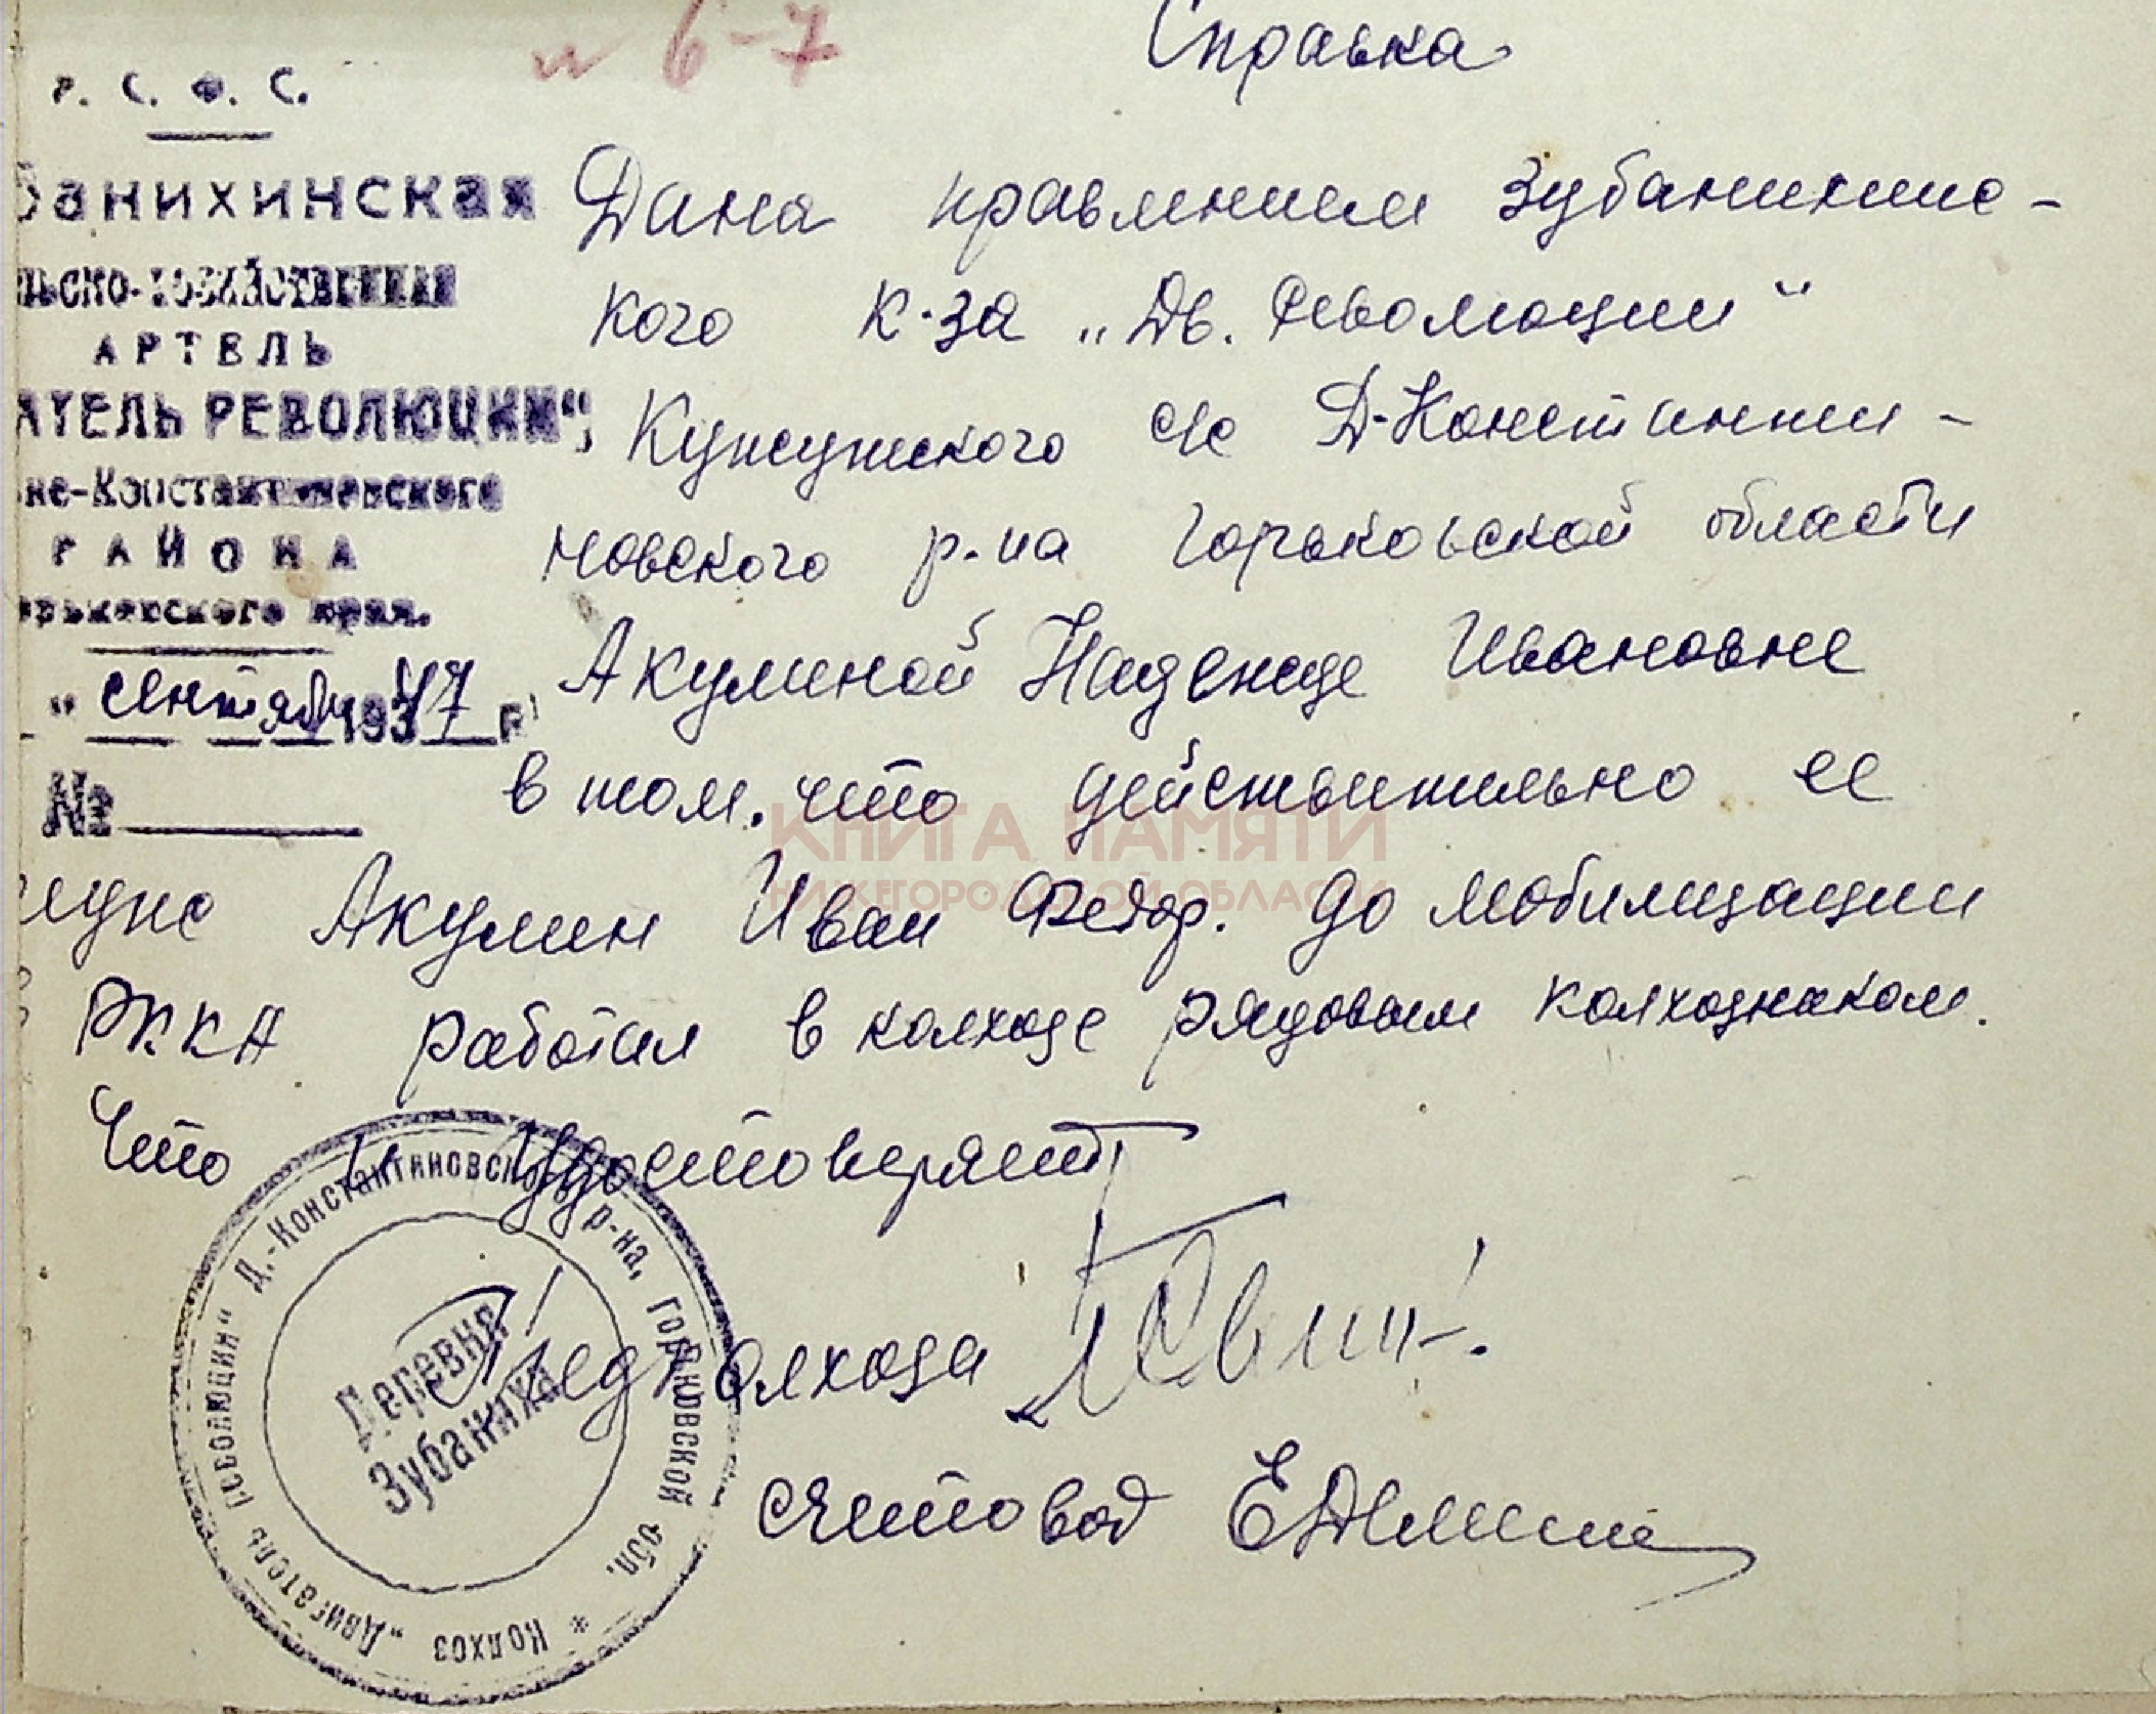 и 6-7
Справка
Р. С. Ф. С.
банихинская
льско-хозяйственная
АРТЕЛЬ
АТЕЛЬ РЕВОЛЮЦИИ",
не-Константиновского
РАЙОНА
орьковского края.
" сентября 1947 г.
№
Дана правлением Зубанихинс-
кого к-за „Дв. Революции"
с/с Д-Константи-
новского р-на Горьковской области
Акулиной Надежде Ивановне
в том. что действительно ее
муж Акулин Иван Федор. до мобилизации
РККА работал в колхозе рядовым колхозником.
Что и удостоверяет
Пред колхоза
счетовод
Колхоз „Двигатель революции" Д.-Константиновского р-на, Горьковской обл. *
Деревня
Зубаниха
КНИГА ПАМЯТИ
НИЖЕГОРОДСКОЙ ОБЛАСТИ